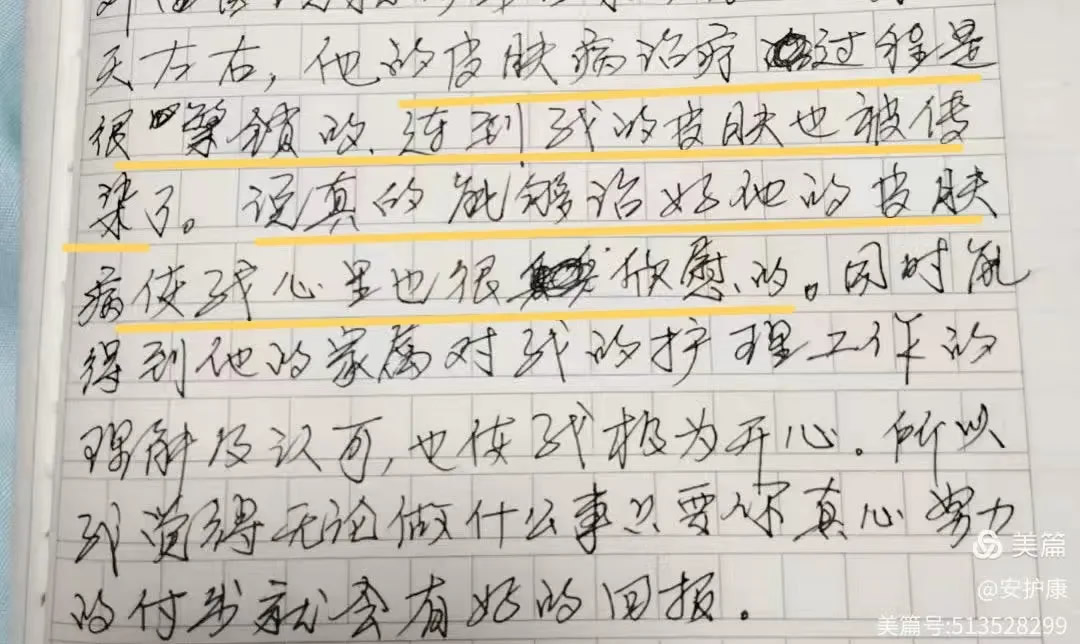 天左右，他的皮肤病治疗过程是
很繁锁的、连到我的皮肤也被传
染了。说真的能够治好他的皮肤
病使我心里也很欣慰的。同时能
得到他的家属对我的护理工作的
理解及认可，也使我极为开心。所以
我觉得无论做什么事只要你真心努力
的付出就会有好的回报。
美篇
@安护康
美篇号:513528299